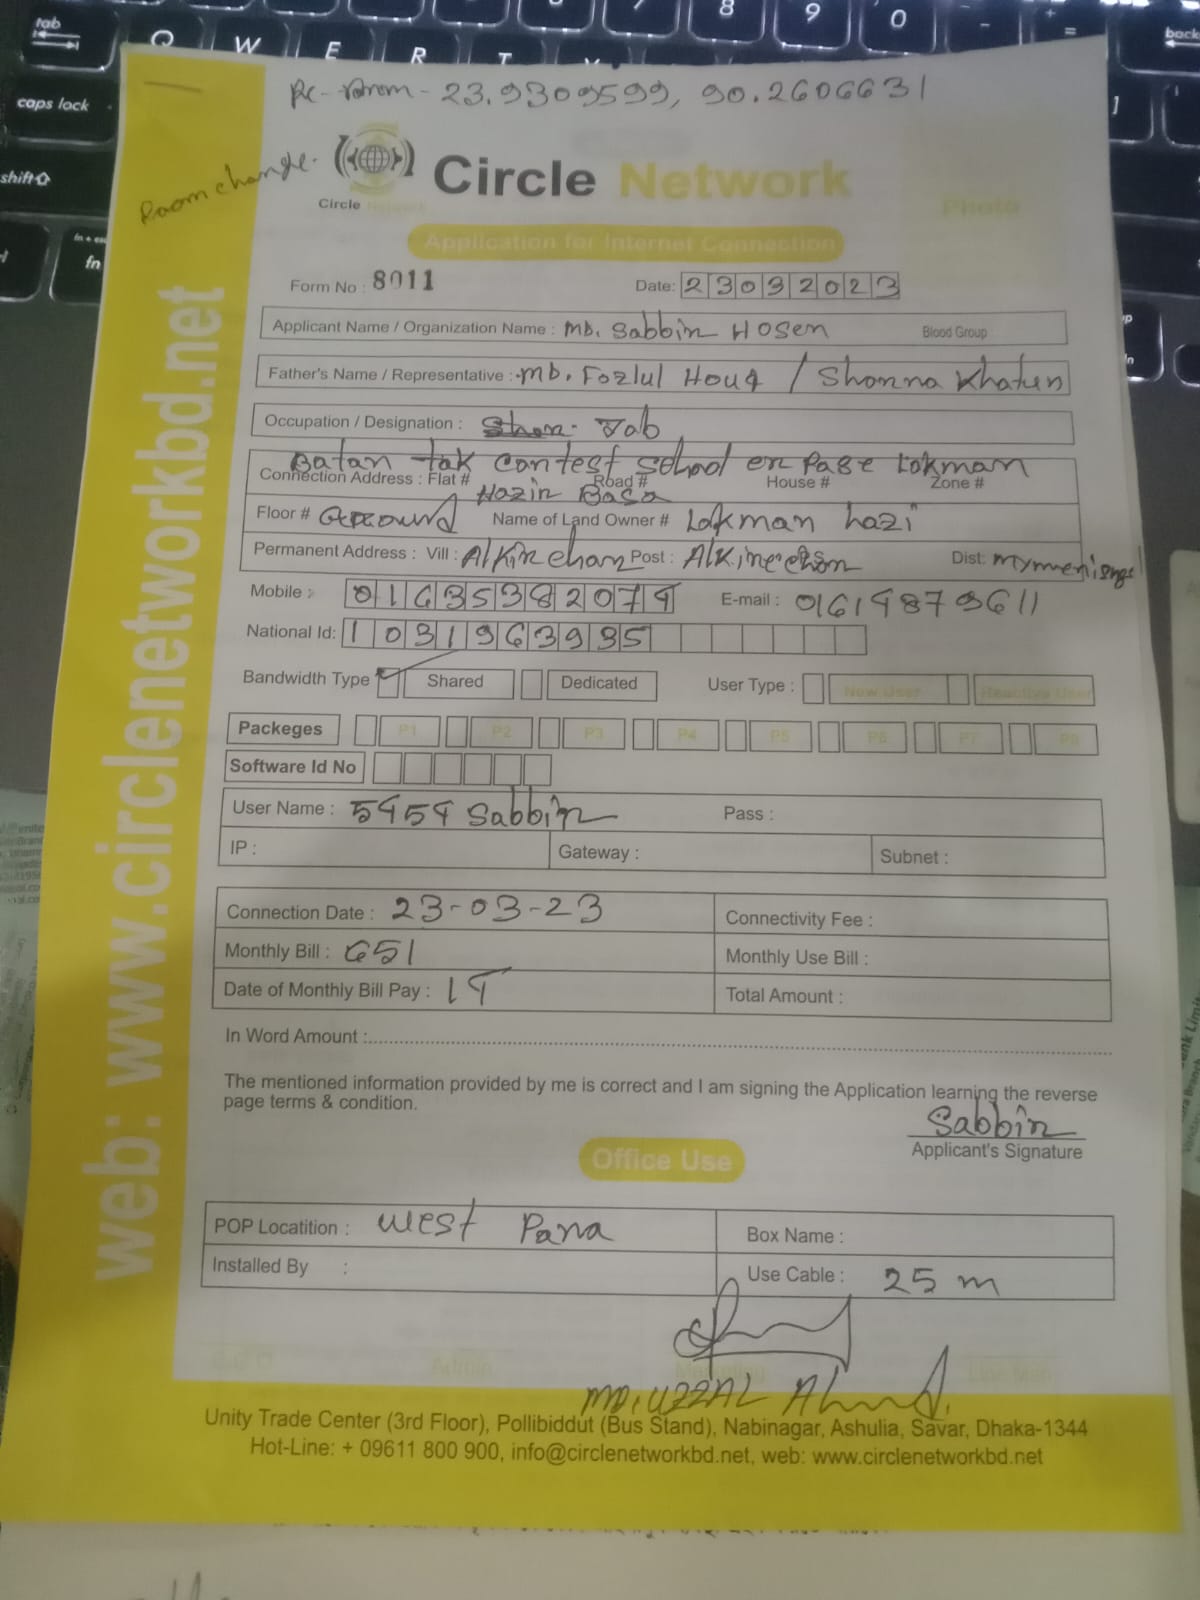 Rc-Room - 23.9309599, 90.2606631
Room change.
Circle Network
Circle Network
Photo
Application for Internet Connection
Form No : 8011
Date: 23032023
Applicant Name / Organization Name : MD. Sabbir Hosen
Blood Group
Father's Name / Representative : MD. Fozlul Houq / Shorna Khatun
Occupation / Designation : Job
Batan tak Cantest School er Pase Lokman
Connection Address : Flat # Road # House # Zone #
Hazir Basa
Floor # Ground Name of Land Owner # Lokman hazi
Permanent Address : Vill : Post : Dist:
Mobile : 01635382074 E-mail : 01619873611
National Id: 1031963935
Bandwidth Type Shared Dedicated User Type : New User Reactive User
Packeges P1 P2 P3 P4 P5 P6 P7 P8
Software Id No
User Name : 5454 Sabbir Pass :
IP : Gateway : Subnet :
Connection Date : 23-03-23 Connectivity Fee :
Monthly Bill : 651 Monthly Use Bill :
Date of Monthly Bill Pay : 14 Total Amount :
In Word Amount :
The mentioned information provided by me is correct and I am signing the Application learning the reverse
page terms & condition.
Sabbir
Applicant's Signature
Office Use
POP Locatition : West Para Box Name :
Installed By : Use Cable : 25 m
Admin Marketing Line Man
MD. UZZAL Ahmed.
Unity Trade Center (3rd Floor), Pollibiddut (Bus Stand), Nabinagar, Ashulia, Savar, Dhaka-1344
Hot-Line: + 09611 800 900, info@circlenetworkbd.net, web: www.circlenetworkbd.net
web: www.circlenetworkbd.net
tab
Q W E R T
8 9 0
- + =
back
caps lock
shift
fn